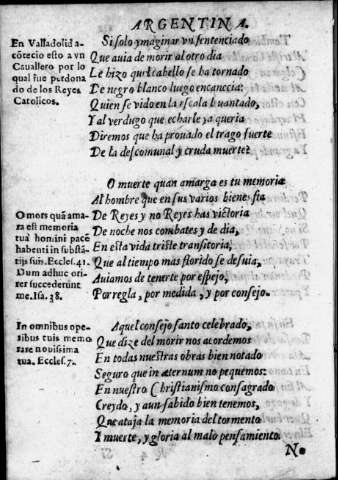 ARGENTINA.
En Valladolid a-
cõtecio esto a vn
Cauallero por lo
qual fue perdona
do de los Reyes
Catolicos.
Si solo ymaginar vn sentenciado
Que auia de morir al otro dia
Le hizo qu'el cabello se ha tornado
De negro blanco luego encanecia:
Quien se vido en la escala leuantado,
Y al verdugo que echarle ya queria
Diremos que ha prouado el trago fuerte
De la descomunal y cruda muerte?
O mors quã ama-
ra est memoria
tua homini pacẽ
habenti in substã-
tijs suis. Eccles. 41.
Dum adhuc ordi-
rer succederunt
me. Isa. 38.
O muerte quan amarga es tu memoria
Al hombre que en sus varios bienes sta
De Reyes y no Reyes has victoria
De noche nos combates y de dia,
En esta vida triste transitoria,
Que al tiempo mas florido se desuia,
Auiamos de tenerte por espejo,
Por regla, por medida, y por consejo.
In omnibus ope-
ribus tuis memo-
rare nouissima
tua. Eccles. 7.
Aquel consejo santo celebrado,
Que dize del morir nos acordemos
En todas nuestras obras bien notado
Seguro que in æternum no pequemos:
En nuestro Christianismo consagrado
Creydo, y aun sabido bien tenemos,
Que ataja la memoria del tormento
I muerte, y gloria al malo pensamiento.
No